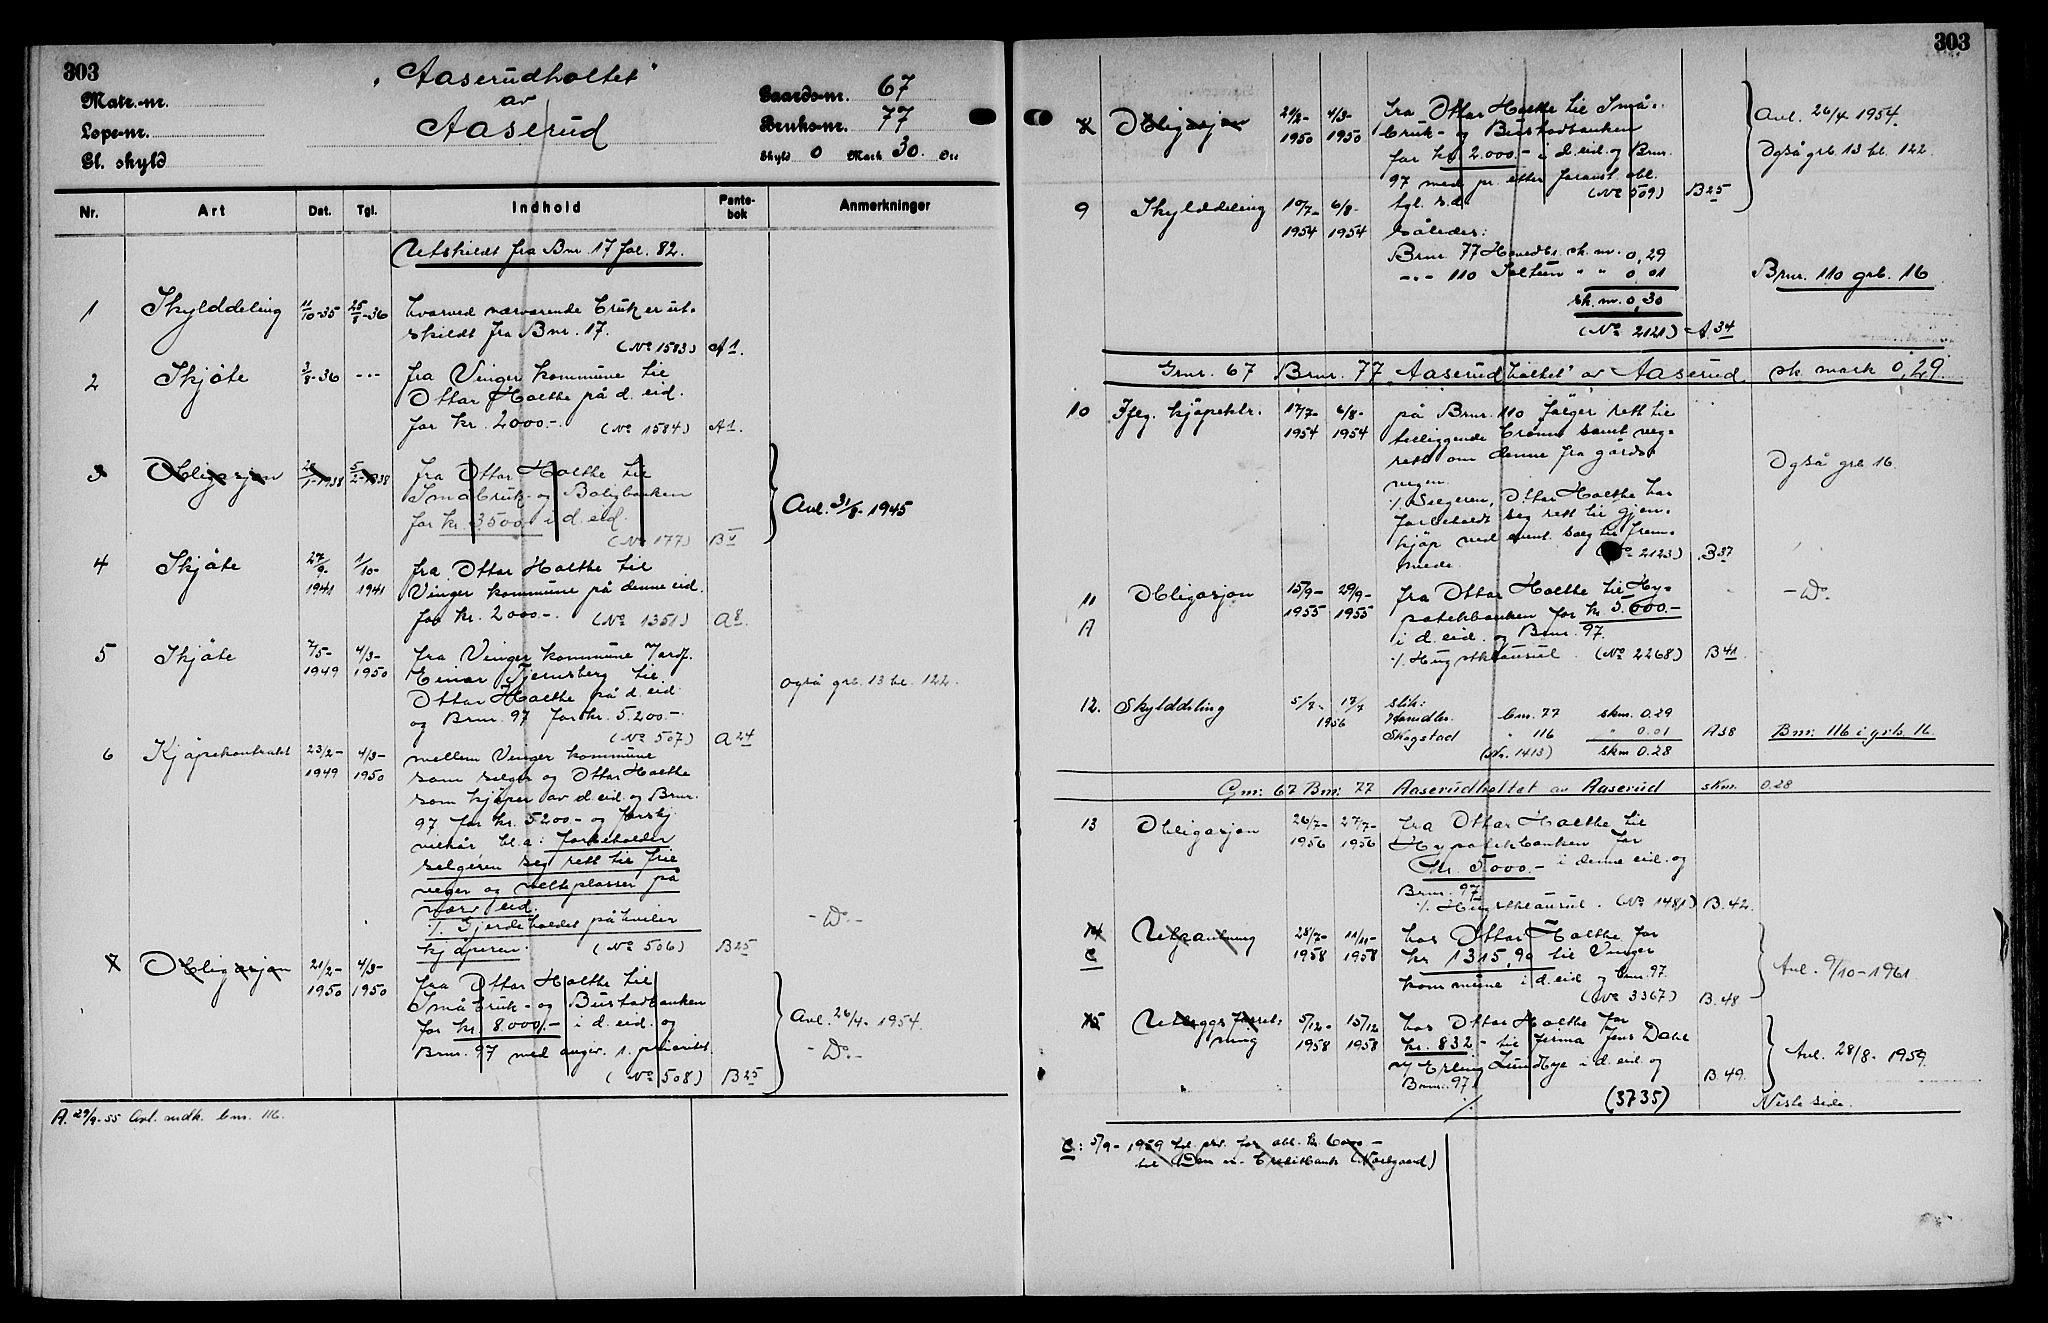 303
„Aaserudholtet"
av
Aaserud
Matr.-nr.
Løpe-nr.
Gl. skyld
Gaards-nr. 67
Bruks-nr. 77
Skyld 0 Mark 30. Øre
Nr. Art Dat. Tgl. Indhold Pante-bok Anmerkninger
Utskildt fra Bnr. 17 fol. 82.
1 Skylddeling 11/10-35 25/8-36 hvorved nærværende bruk er ut-
skildt fra Bnr. 17.
(No 1583) A1.
2 Skjøte 3/8-36 -"- fra Vinger kommune til
Ottar Holthe på d. eid.
for kr. 2000.-. (No 1584) A1.
3 Obligasjon 5/2-1938 fra Ottar Holthe til
Småbruk- og Boligbanken
for kr. 3500 i d. eid.
(No 177)
Avl. 31/8-1945
4 Skjøte 27/9-1941 1/10-1941 fra Ottar Holthe til
Vinger kommune på denne eid.
for kr. 2000-. (No 1351) A8.
5 Skjøte 7/5-1949 4/3-1950 fra Vinger kommune v/ordf.
Einar Tjernsberg til
Ottar Holthe på d. eid.
og Bnr. 97 for kr. 5.200.-.
(No 507) A24
også grb. 13 bl. 122.
6 Kjøpekontrakt 23/2-1949 4/3-1950 mellem Vinger kommune
som selger og Ottar Holthe
som kjøper av d. eid. og Brnr.
97 for kr. 5200.- og forskj.
vilkår bl. a: forbeholder
selgeren seg rett til frie
veger og velteplasser på
nærv. eid.
./. Gjerdeholdet påhviler
kjøperen. (No 506) B25
- Do.-
7 Obligasjon 21/2-1950 4/3-1950 fra Ottar Holthe til
Småbruk- og Bustadbanken
for kr. 8.000.- i d. eid. og
Brnr. 97 med angiv. 1. prioritet.
(No 508) B25
Avl. 26/4-1954.
- Do.-
A. 29/9-55 Avl. mdk. bnr. 116.
303
8 Obligasjon 21/2-1950 4/3-1950 fra Ottar Holthe til Små-
bruk- og Bustadbanken
for kr. 2.000.- i d. eid. og Brnr.
97 med pr. etter foranst. obl.
tgl. s.d. (No 509) B25
Avl. 26/4 1954.
Også grb. 13 bl. 122.
9 Skylddeling 10/7-1954 6/8-1954
således:
Brnr. 77 Hovedbr. sk. m. 0,29
-"- 110 Soltun " " 0,01
sk. m. 0,30
(No 2121) A34
Brnr. 110 grb. 16
Gnr. 67 Brnr. 77 „Aaserudholtet" av Aaserud sk. mark 0,29.
10 Iflg. kjøpektr. 17/7-1954 6/8-1954 på Brnr. 110 følger rett til
tilliggende brønn samt veg-
rett om denne fra gårds-
vegen.
./. Selgeren, Ottar Holthe har
forbeholdt seg rett til gjen-
kjøp ved event. salg til frem-
mede. (No 2123) B37
Også grb 16
11 A Obligasjon 15/9-1955 29/9-1955 fra Ottar Holthe til Hy-
potekbanken for kr. 5.600.-
i d. eid. og Brnr. 97.
./. Hugstklausul. (No 2268) B41
- Do.
12. Skylddeling 5/7- 17/7 1956 slik:
Hovedbr. bnr. 77 skm. 0.29
Skogstad " 116 " 0.01
(Nr. 1413) skm 0.28
A38 Bnr. 116 i grb. 16.
Gnr: 67 Bnr: 77 Aaserudholtet av Aaserud skm. 0.28
13 Obligasjon 26/7-1956 27/7-1956 fra Ottar Holthe til
Hypotekbanken for
kr. 5.000.- i denne eid. og
Brnr. 97.
./. Hugstklausul. (No 1481) B. 42.
14 C Utpantning 28/7-1958 11/11-1958 hos Ottar Holthe for
kr 1315,90 til Vinger
kommune i d. eid og bnr. 97.
(No 3367) B. 48
Avl. 9/10-1961
15 Utleggsforret-
ning 5/12-1958 15/12 1958 hos Ottar Holthe for
kr. 832.- til firma Jens Dahl
v/ Erling Lundbye i d. eid. og
Brnr. 97.
(3735) B. 49.
Avl. 28/8-1959.
./. Neste side.
C: 5/9-1959 for obl. kr. 6000.-
til Den n. Creditbank